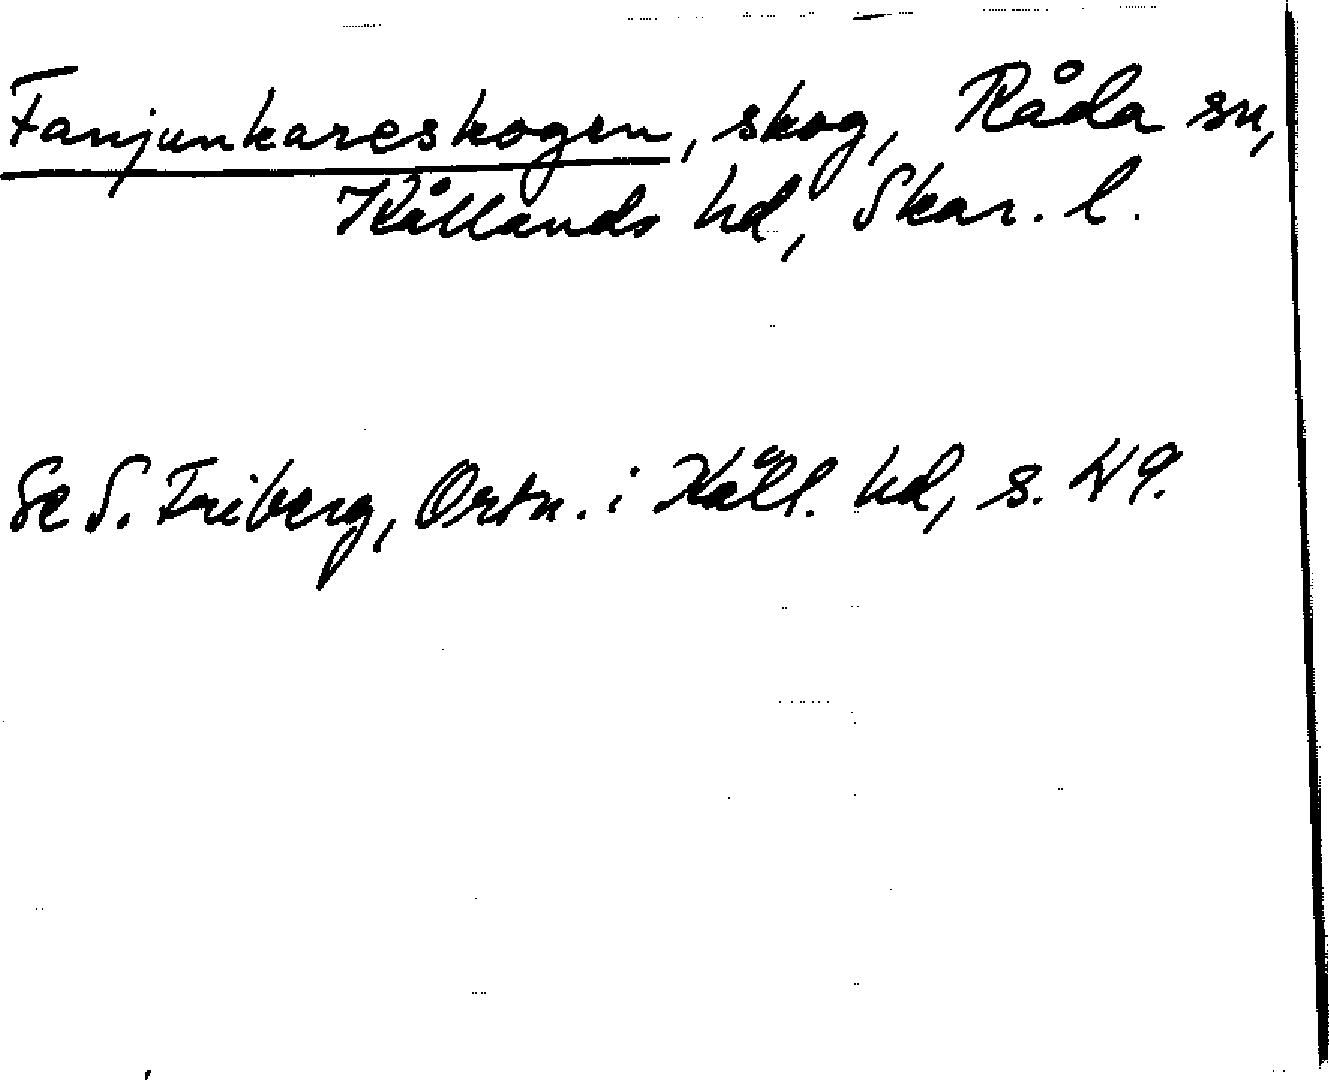 Fanjunkareskogen, skog, Råda sn,
Kållands hd, Skar. l.
Se S. Friberg, Ortn. i Kåll. hd, s. 49.